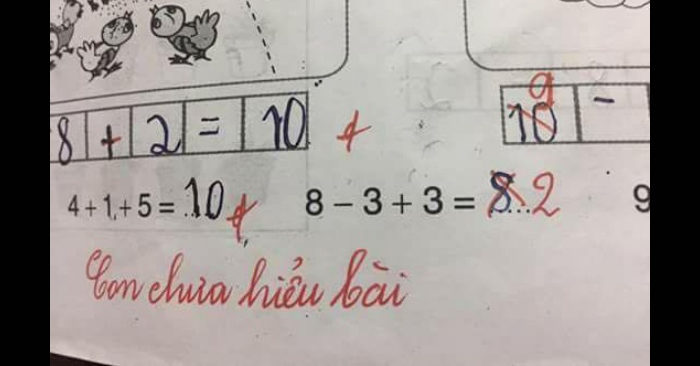 9
8 + 2 = 10 10 -
4 + 1 + 5 = 10 8 - 3 + 3 = 8 2 9
Con chưa hiểu bài